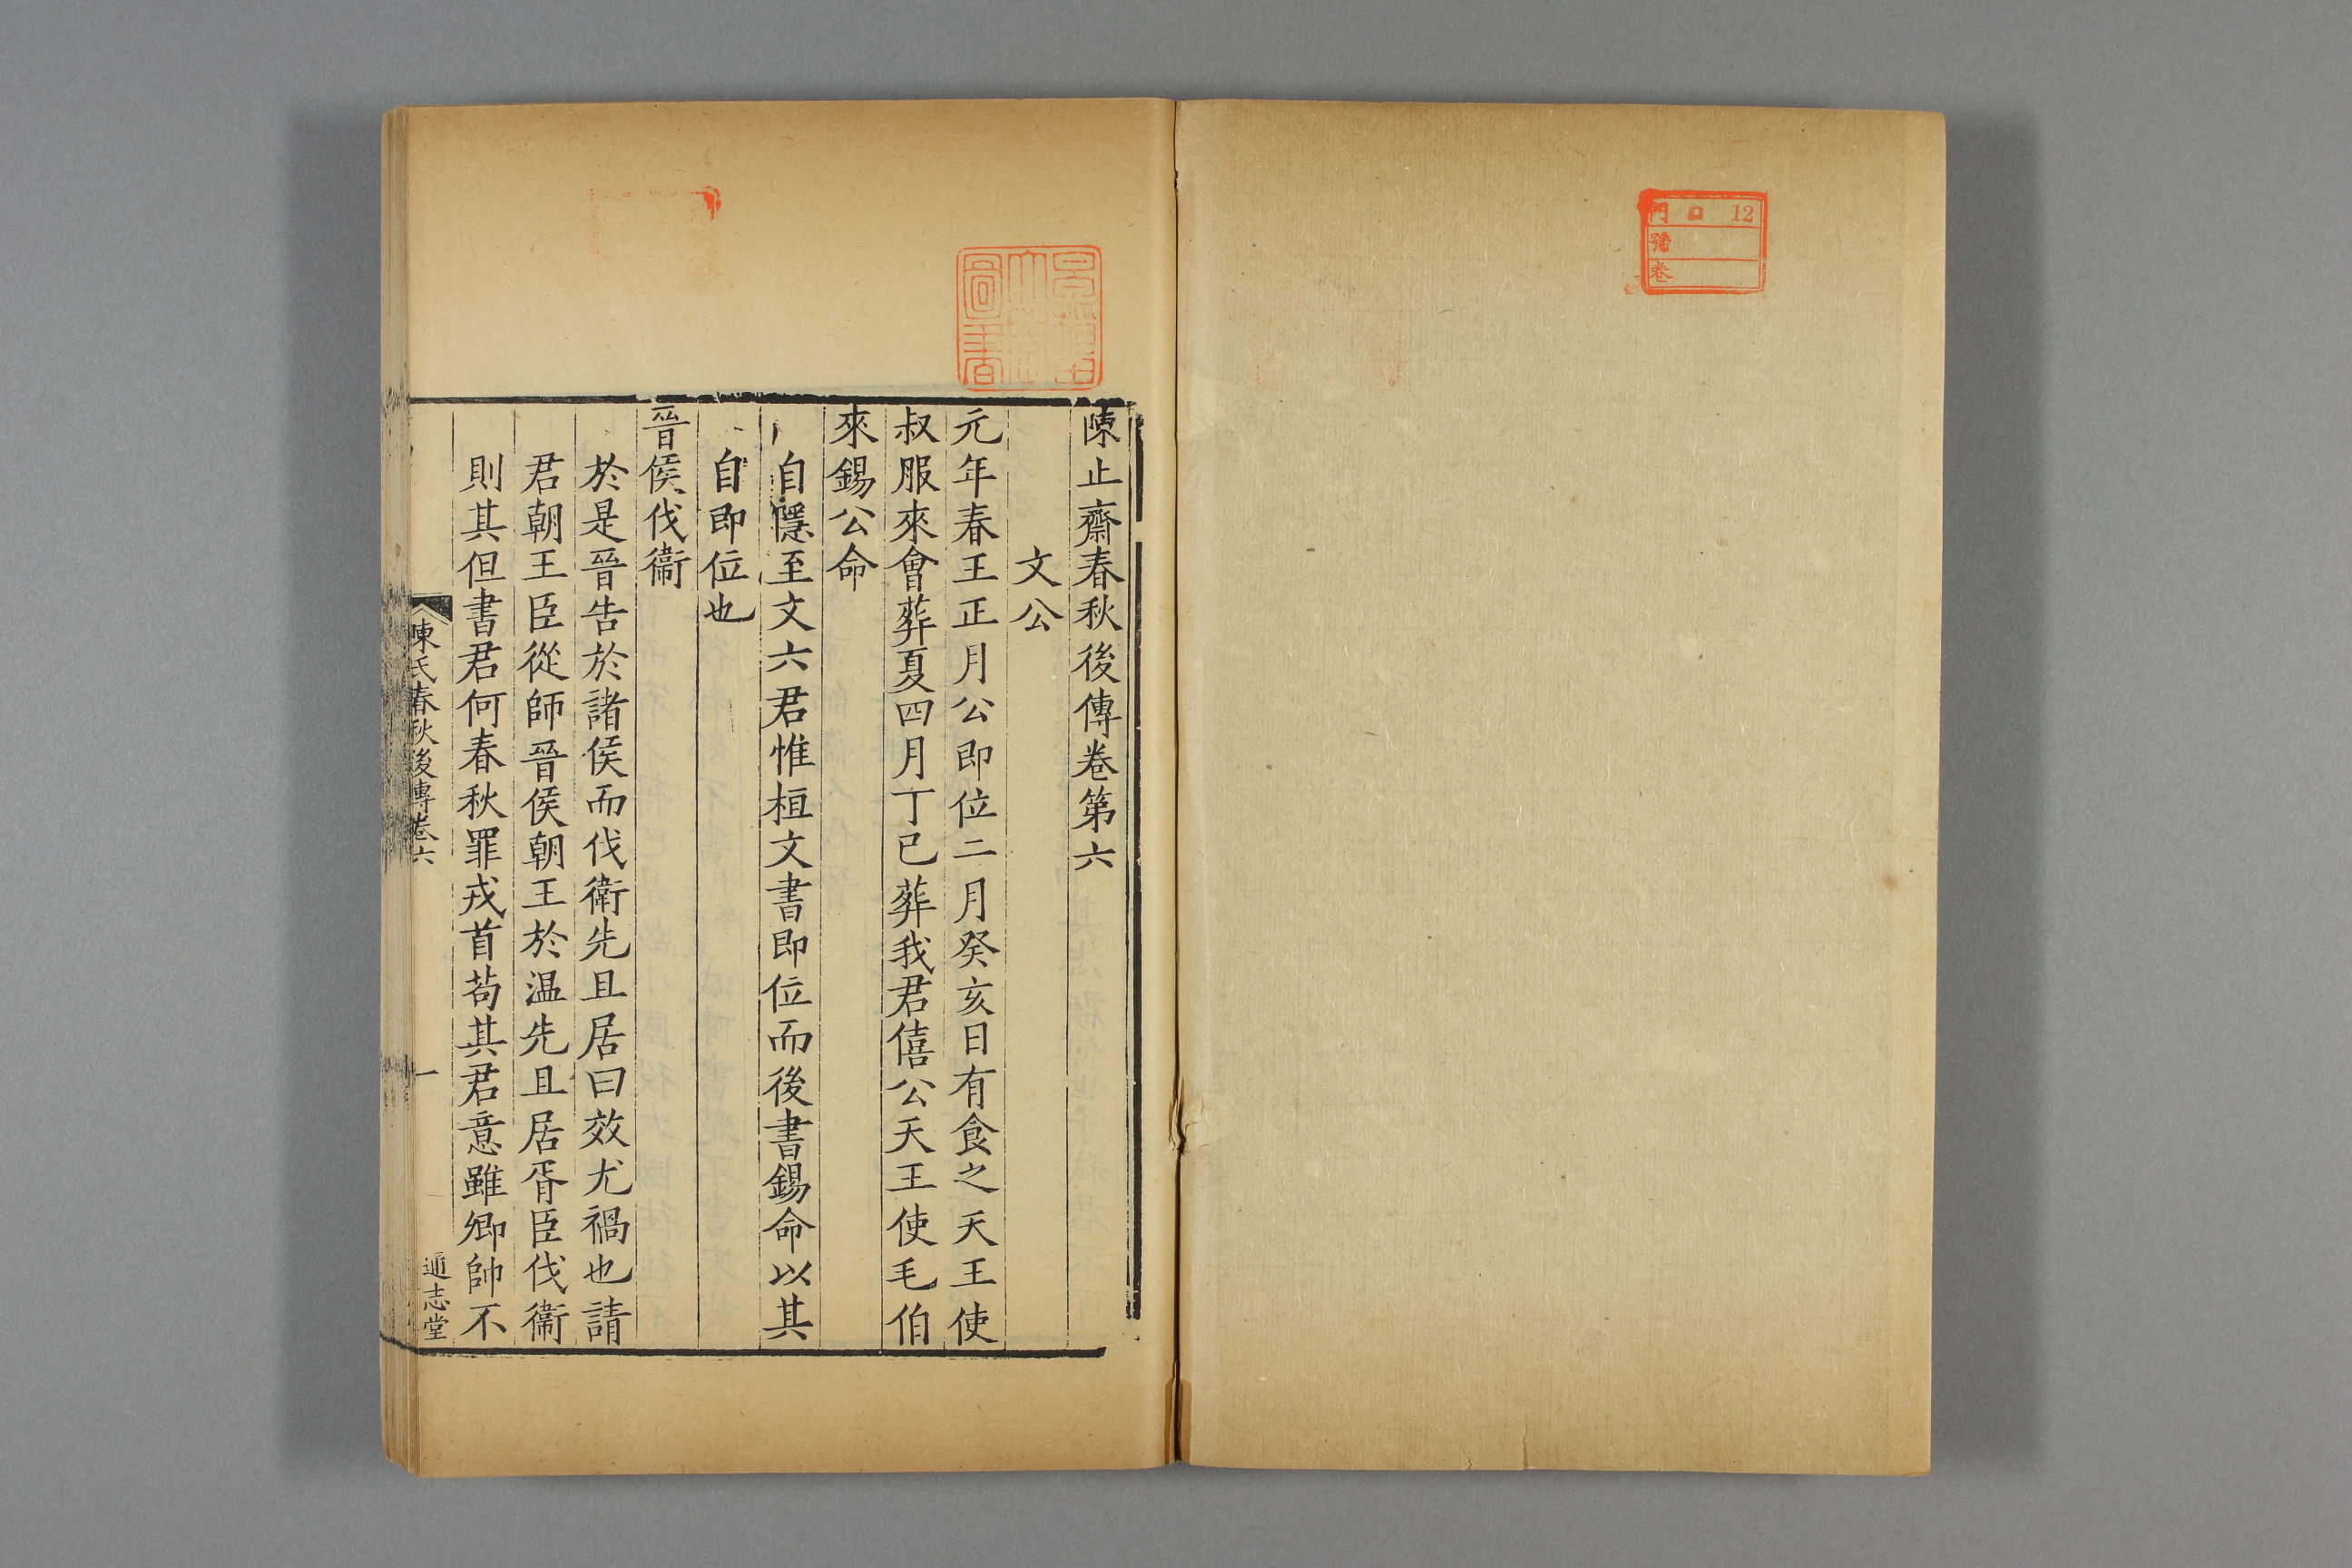 門 口 12
號
卷
陳止齋春秋後傳卷第六
文公
元年春王正月公即位二月癸亥日有食之天王使
叔服來會葬夏四月丁巳葬我君僖公天王使毛伯
來錫公命
自隱至文六君惟桓文書即位而後書錫命以其
自即位也
晉侯伐衞
於是晉告於諸侯而伐衛先且居曰效尤禍也請
君朝王臣從師晉侯朝王於温先且居胥臣伐衞
則其但書君何春秋罪戎首苟其君意雖卿帥不
陳氏春秋後傳卷六
一
通志堂